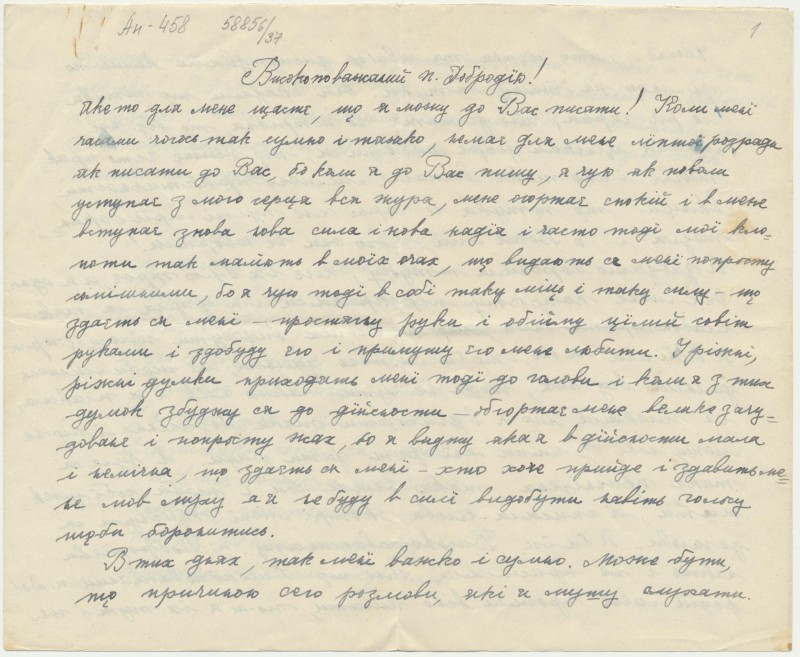 Ан-458 58856/37
1
Високоповажаний п. Добродію!
Яке то для мене щастє, що я можу до Вас писати! Коли мені
часами чогось так сумно і тяжко, немає для мене ліпшої розради
як писати до Вас, бо коли я до Вас пишу, я чую як поволи
уступає з мого серця вся журa, мене огортає спокій і в мене
вступає знова нова сила і нова надія і часто тоді мої кло-
поти так маліють в моїх очах, що видають ся мені попросту
смішними, бо я чую тоді в собі таку міць і таку силу – що
здаєть ся мені – простягну руки і обійму цілий сьвіт
руками і здобуду єго і примушу єго мене любити. І ріжні,
ріжні думки приходять мені тоді до голови і коли я з тих
думок збуджу ся до дійсности – обгортає мене велике зачу-
дованє і попросту жах, бо я виджу яка я в дійсности мала
і немічна, що здаєть ся мені – хто хоче прийде і здавить ме-
не мов муху а я не буду в силі видобути навіть голосу
щоби боронитись.
В тих днях, так мені важко і сумно. Може бути,
що причиною сего розмови, які я мушу слухати.